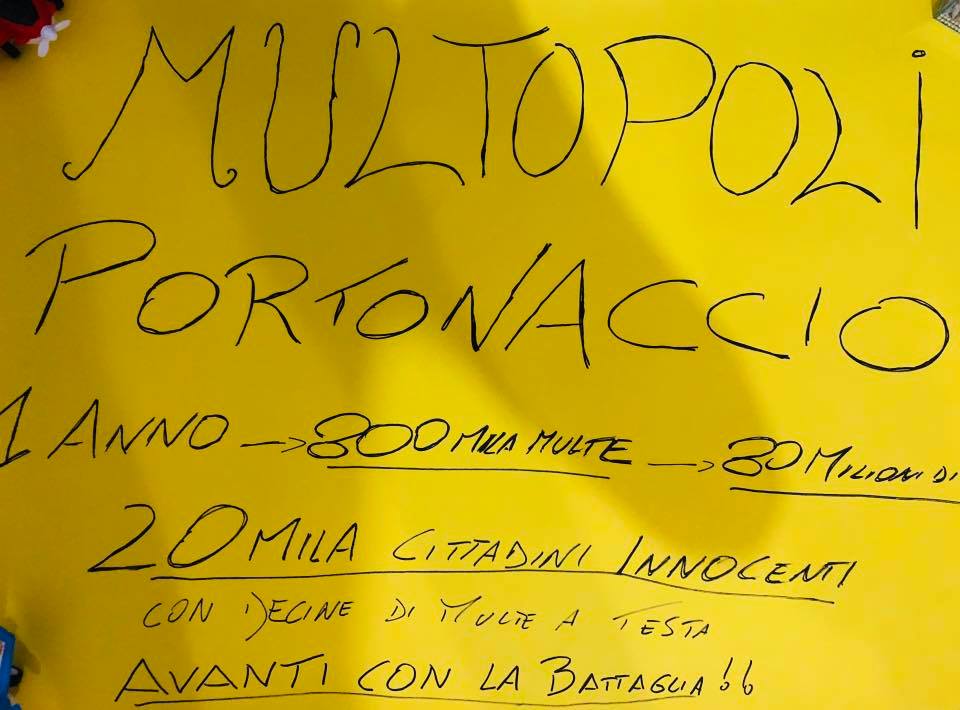 MULTOPOLI
PORTONACCIO
1 ANNO → 300 MILA MULTE → 30 MILIONI DI
20 MILA CITTADINI INNOCENTI
CON DECINE DI MULTE A TESTA
AVANTI CON LA BATTAGLIA!!